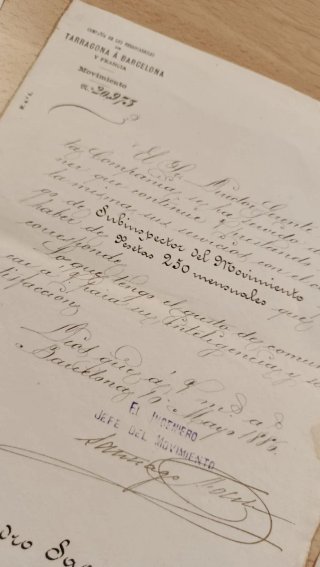 COMPAÑÍA DE LOS FERROCARRILES
DE
TARRAGONA Á BARCELONA
Y FRANCIA
Movimiento
N. 20.975
El Sr. Director Gerente
la Compañía, se ha servido
ner que continúe prestando
la misma sus servicios con
go de Subinspector del Movimiento
haber de Pesetas 250 mensuales que
corresponde.
Lo que tengo el gusto de comuni
car á V. para su inteligencia y sa
tisfacción.
Dios gue. á V. m. s. a. s.
Barcelona Mayo 1886.
EL INGENIERO
JEFE DEL MOVIMIENTO